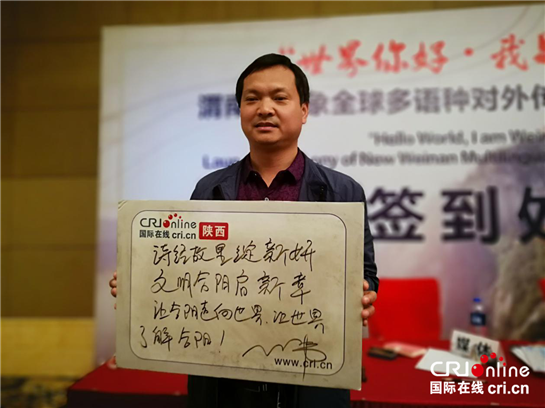 "世界你好·我
渭南 象全球多语种对外传
"Hello World, I am Wei
Laun ony of New Weinan Multilingual
签到处
CRI online
国际在线 cri.cn 陕西
诗经故里绽新妍
文明合阳启新章
让合阳走向世界、让世界
了解合阳!
www.cri.cn
媒体
CRI online
国际在线